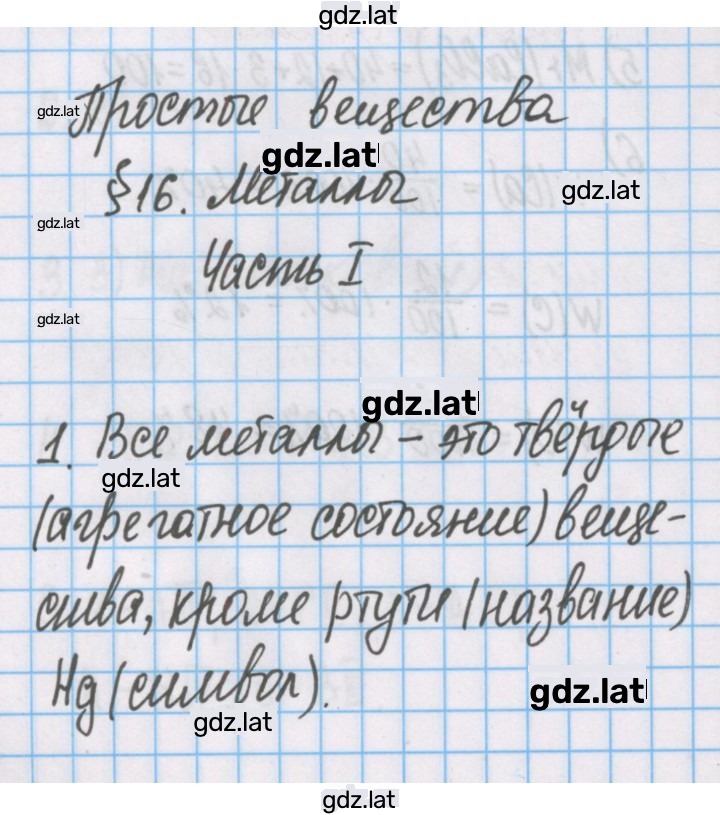 gdz.lat
Простые вещества
gdz.lat
gdz.lat
§ 16. Металлы
gdz.lat
gdz.lat
Часть I
gdz.lat
gdz.lat
1. Все металлы – это твёрдые
gdz.lat
(агрегатное состояние) веще-
ства, кроме ртути (название)
Hg (символ).
gdz.lat
gdz.lat
gdz.lat